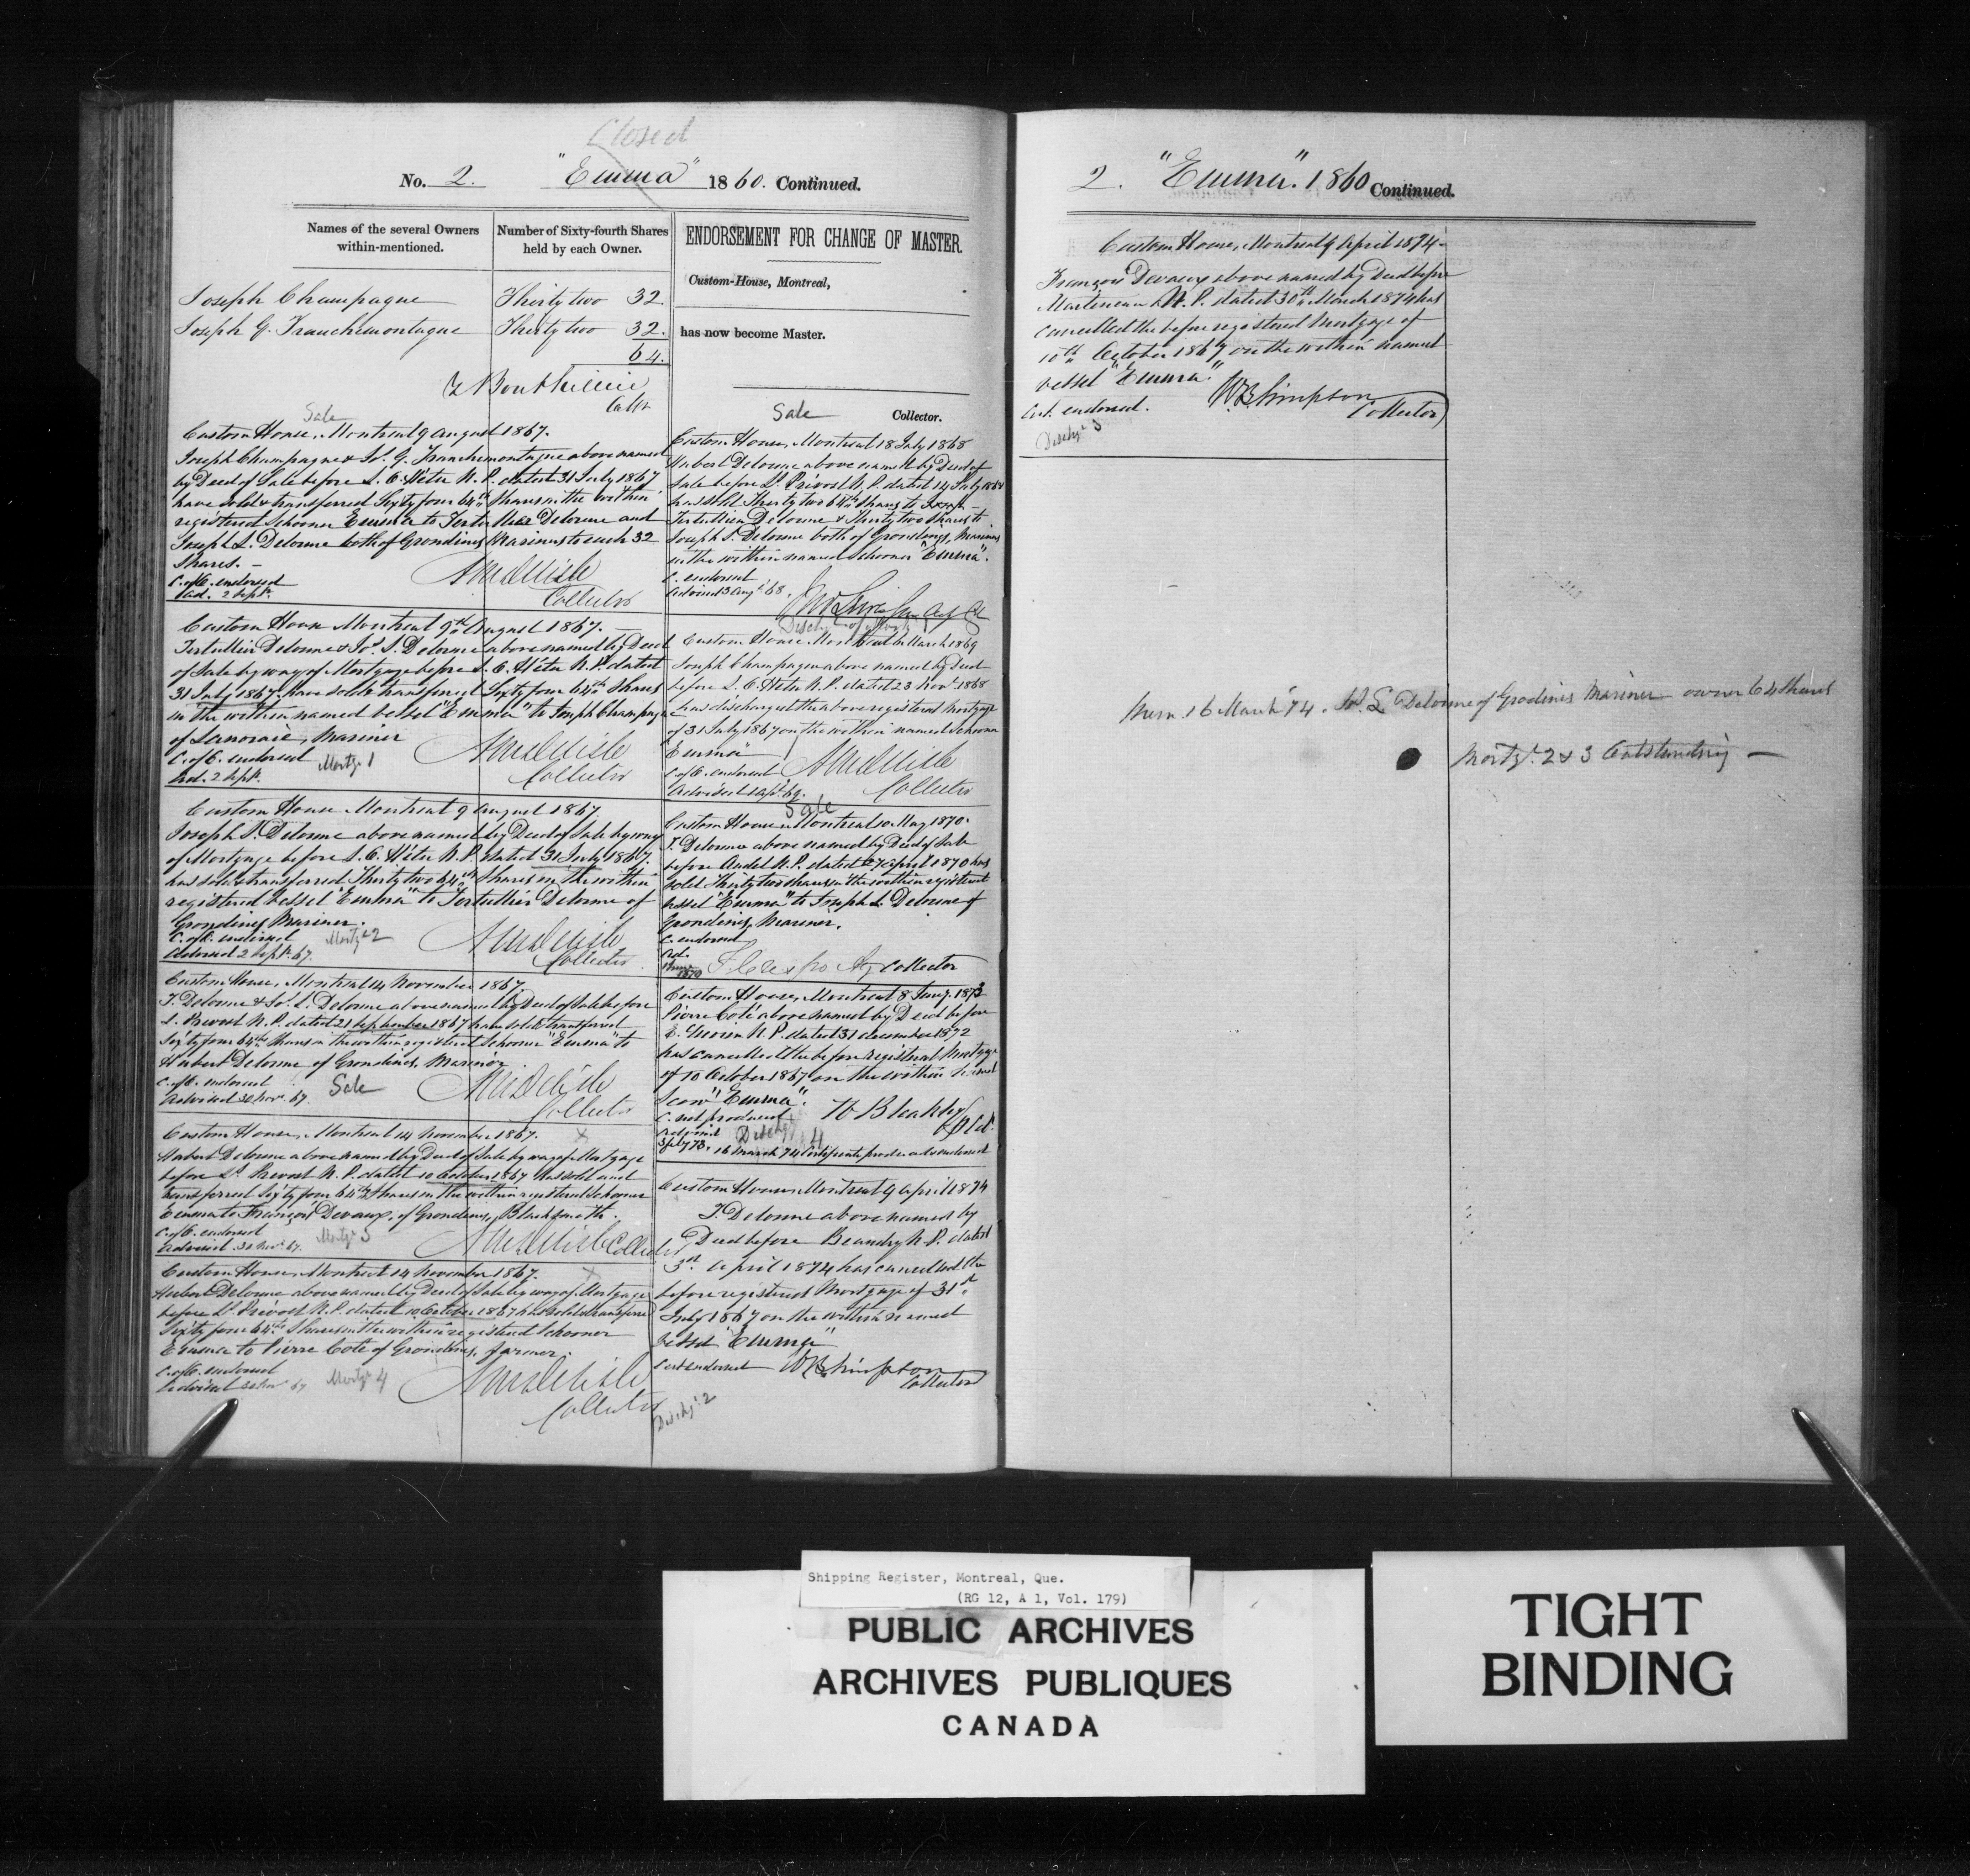 Closed
No. 2. "Emma" 1860. Continued.
Names of the several Owners within-mentioned.
Number of Sixty-fourth Shares held by each Owner.
Joseph Champagne Thirty two 32
Joseph G. Franchemontagne Thirty two 32.
64.
Collr
Sale
Custom House, Montreal 9 August 1867.
Joseph Champagne & Jos. G. Franchemontagne above named
by Deed of Sale before L. O. Hétu N. P. dated 31 July 1867
have sold & transferred Sixty four 64th Shares in the within
registered Schooner Emma to Tertullien Delorme and
Joseph L. Delorme both of Grondines Mariners to each 32
Shares. —
C. of C. endorsed
Ad. 2 Sept.
Collector
Custom House Montreal 9th August 1867. —
Tertullien Delorme & Jos. L. Delorme above named by Deed
of Sale by way of Mortgage before L. O. Hétu N. P. dated
31 July 1867 have sold & transferred Sixty four 64th Shares
in the within named vessel "Emma" to Joseph Champagne
of Lanoraie, Mariner
C. of C. endorsed Mortge 1
Ad. 2 Sept.
Collector
Custom House Montreal 9 August 1867.
Joseph L. Delorme above named by Deed of Sale by way
of Mortgage before L. O. Hétu N. P. dated 31 July 1867.
has sold & transferred Thirty two 64th Shares in the within
registered vessel "Emma" to Tertullien Delorme of
Grondines Mariner.
C. of C. endorsed Mortge 2
Advised 2 Sept. 67.
Collector
Custom House, Montreal 14 November 1867.
T. Delorme & Jos. L. Delorme above named by Deed of Sale before
L. Prevost N. P. dated 21 September 1867 have sold & transferred
Sixty four 64ths Shares in the within registered Schooner "Emma" to
Hubert Delorme of Grondines, Mariner
C. of C. endorsed Sale
Advised 30 Nov. 67.
Collector
Custom House, Montreal 14 November 1867. X
Hubert Delorme above named by Deed of Sale by way of Mortgage
before Ls. Prevost N. P. dated 10 October 1867 has sold and
transferred Sixty four 64th Shares in the within registered Schooner
Emma to François Devaux, of Grondines, Blacksmith.
C. of C. endorsed Mortge 3
Advised 30 Nov. 67.
Collector
Custom House, Montreal 14 November 1867. X
Hubert Delorme above named by Deed of Sale by way of Mortgage
before Ls. Prevost N. P. dated 10 October 1867 has sold & transferred
Sixty four 64th Shares in the within registered Schooner
Emma to Pierre Coté of Grondines, farmer.
C. of C. endorsed Mortge 4
Advised 30 Nov. 67
Collector
ENDORSEMENT FOR CHANGE OF MASTER.
Custom-House, Montreal,
has now become Master.
Sale Collector.
Custom House, Montreal 18 July 1868
Hubert Delorme above named by Deed of
Sale before Ls. Prévost N. P. dated 14 July 1868
has sold Thirty two 64th Shares to
Tertullien Delorme & Thirty two Shares to
Joseph L. Delorme both of Grondines, Mariners
in the within named Schooner "Emma".
C. endorsed
Advised 13 Augt. 68.
Custom House Montreal March 1869
Joseph Champagne above named by Deed
before L. O. Hétu N. P. dated 23 Novr. 1868
has discharged the above registered Mortgage
of 31 July 1867 on the within named Schooner
"Emma"
C. of C. endorsed
Advised 1 Apl. 69.
Collector
Sale
Custom House Montreal 10 May 1870.
T. Delorme above named by Deed of Sale
before Audet N. P. dated 27 April 1870 has
sold Thirty two Shares in the within registered
vessel "Emma" to Joseph L. Delorme of
Grondines, Mariner.
C. endorsed
Ad.
1870 Collector
Custom House, Montreal 8 Jany. 1873
Pierre Coté above named by Deed before
N. P. dated 31 december 1872
has cancelled the before registered Mortgage
of 10 October 1867 on the within named
Scow "Emma".
C. not produced
Advised Dischge 4
16 March 74 Certificate produced & endorsed
Custom House Montreal 9 April 1874
T. Delorme above named by
Deed before Beaudry N. P. dated
3rd April 1874 has cancelled the
before registered Mortgage of 31st
July 1867 on the within named
vessel "Emma"
Cert. endorsed WB Simpson
Collector
Dischge 2
2. "Emma". 1860 Continued.
Custom House, Montreal 9 April 1874.
François Devaux above named by Deed before
Martineau N. P. dated 30th March 1874 has
cancelled the before registered Mortgage of
10th October 1867 on the within named
vessel "Emma."
Cert. endorsed. WB Simpson
Collector
Dischge 3
Mem. 16 March '74. Js. L Delorme of Grodines Mariner owner 64 Shares
Mortge. 2 & 3 Outstanding —
Shipping Register, Montreal, Que.
(RG 12, A 1, Vol. 179)
PUBLIC ARCHIVES
ARCHIVES PUBLIQUES
CANADA
TIGHT
BINDING